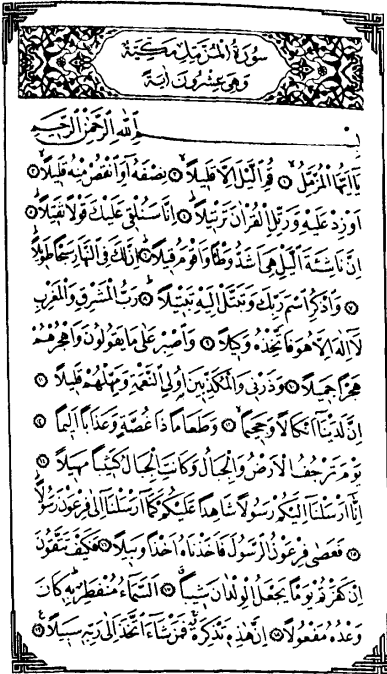 سُورَةُ الْمُزَّمِّلِ مَكِّيَّةٌ
وَهِيَ عِشْرُونَ اٰيَةً
بِسْمِ اللّٰهِ الرَّحْمٰنِ الرَّحِيمِ
يَٓا اَيُّهَا الْمُزَّمِّلُۙ ١ قُمِ الَّيْلَ اِلَّا قَلِيلًاۙ ٢ نِصْفَهُٓ اَوِ انْقُصْ مِنْهُ قَلِيلًاۙ ٣
اَوْ زِدْ عَلَيْهِ وَرَتِّلِ الْقُرْاٰنَ تَرْتِيلًاۜ ٤ اِنَّا سَنُلْقِي عَلَيْكَ قَوْلًا ثَقِيلًا ٥
اِنَّ نَاشِئَةَ الَّيْلِ هِيَ اَشَدُّ وَطْـًٔا وَاَقْوَمُ قِيلًاۜ ٦ اِنَّ لَكَ فِي النَّهَارِ سَبْحًا طَوِيلًاۜ
٧ وَاذْكُرِ اسْمَ رَبِّكَ وَتَبَتَّلْ اِلَيْهِ تَبْتِيلًاۜ ٨ رَبُّ الْمَشْرِقِ وَالْمَغْرِبِ
لَٓا اِلٰهَ اِلَّا هُوَ فَاتَّخِذْهُ وَكِيلًا ٩ وَاصْبِرْ عَلٰى مَا يَقُولُونَ وَاهْجُرْهُمْ
هَجْرًا جَمِيلًا ١٠ وَذَرْنِي وَالْمُكَذِّبِينَ اُولِي النَّعْمَةِ وَمَهِّلْهُمْ قَلِيلًا ١١
اِنَّ لَدَيْنَٓا اَنْكَالًا وَجَحِيمًاۙ ١٢ وَطَعَامًا ذَا غُصَّةٍ وَعَذَابًا اَلِيمًا ١٣
يَوْمَ تَرْجُفُ الْاَرْضُ وَالْجِبَالُ وَكَانَتِ الْجِبَالُ كَثِيبًا مَهِيلًا ١٤
اِنَّٓا اَرْسَلْنَٓا اِلَيْكُمْ رَسُولًا شَاهِدًا عَلَيْكُمْ كَمَٓا اَرْسَلْنَٓا اِلٰى فِرْعَوْنَ رَسُولًاۜ
١٥ فَعَصٰى فِرْعَوْنُ الرَّسُولَ فَاَخَذْنَاهُ اَخْذًا وَبِيلًا ١٦ فَكَيْفَ تَتَّقُونَ
اِنْ كَفَرْتُمْ يَوْمًا يَجْعَلُ الْوِلْدَانَ شِيبًاۗ ١٧ اَلسَّمَٓاءُ مُنْفَطِرٌ بِهِۜ كَانَ
وَعْدُهُ مَفْعُولًا ١٨ اِنَّ هٰذِهِ تَذْكِرَةٌۚ فَمَنْ شَٓاءَ اتَّخَذَ اِلٰى رَبِّهِ سَبِيلًا۟ ١٩